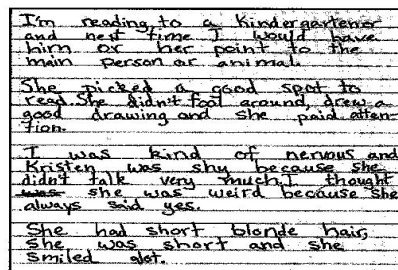 I'm reading to a kindergartener
and next time I would have
him or her point to the
main person or animal.
She picked a good spot to
read. She didn't fool around, drew a
good drawing and she paid atten-
tion.
I was kind of nervous and
Kristen was shy because she
didn't talk very much, I thought
was she was weird because she
always said yes.
She had short blonde hair,
She was short and she
smiled alot.